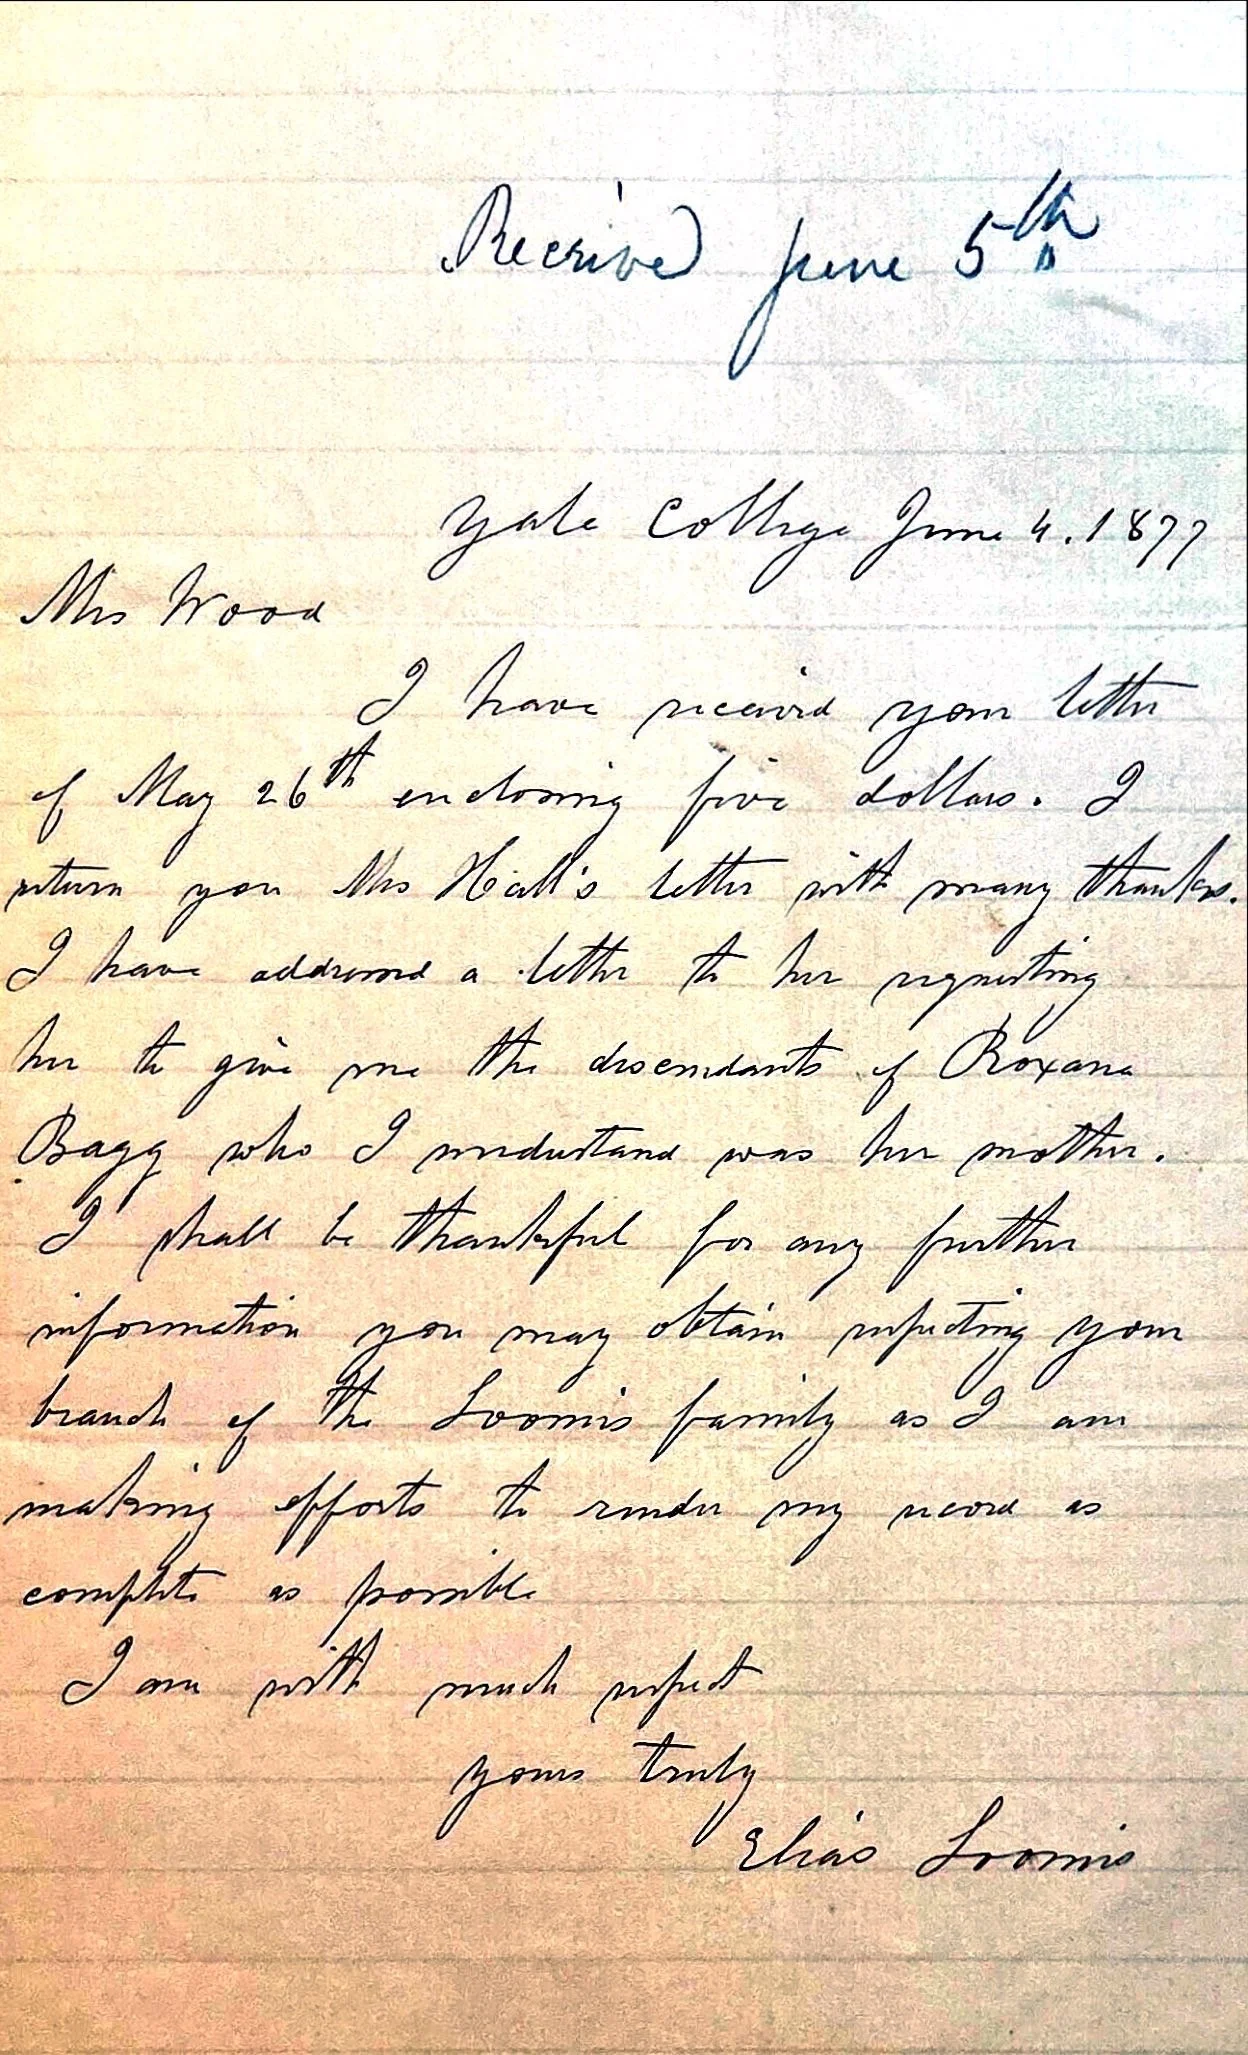 Received June 5th
Yale College June 4. 1877
Mrs Wood
I have received your letter
of May 26th enclosing five dollars. I
return you Mrs Hall's letter with many thanks.
I have addressed a letter to her requesting
her to give me the descendants of Roxana
Bagg who I understand was her mother.
I shall be thankful for any further
information you may obtain respecting your
branch of the Loomis family as I am
making efforts to render my record as
complete as possible
I am with much respect
yours truly
Elias Loomis